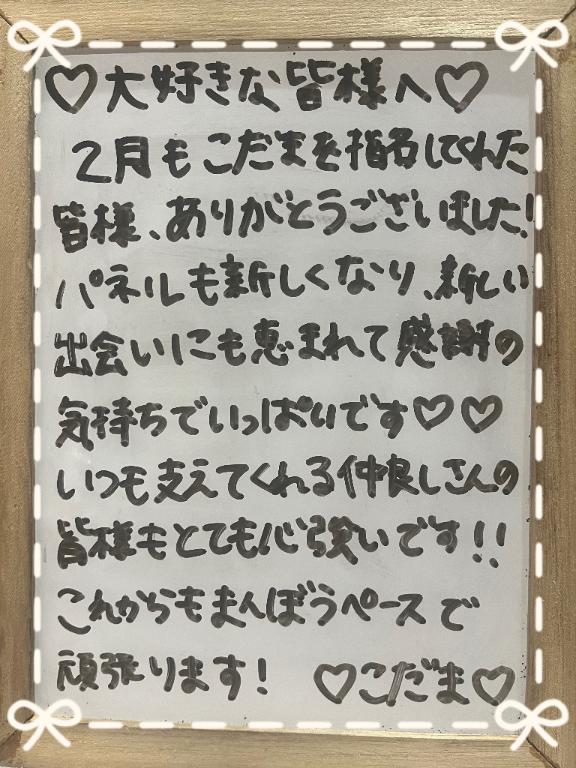 ♡大好きな皆様へ♡
2月もこだまを指名してくれた
皆様、ありがとうございました!
パネルも新しくなり、新しい
出会いにも恵まれて感謝の
気持ちでいっぱいです♡♡
いつも支えてくれる仲良しさんの
皆様もとても心強いです!!
これからもまんぼうペースで
頑張ります! ♡こだま♡